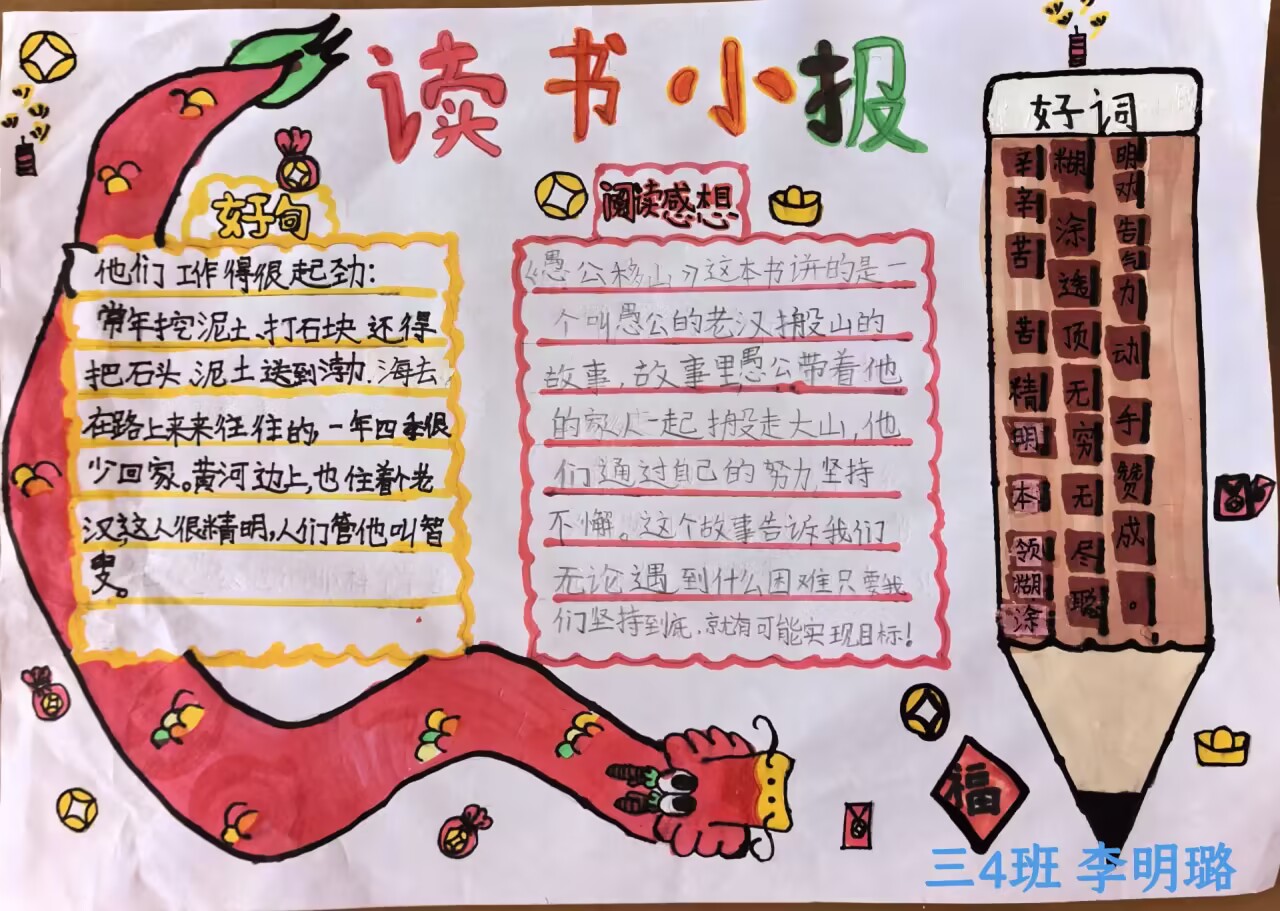 读书小报
好句
他们工作得很起劲:
常年挖泥土、打石块还得
把石头、泥土送到渤.海去,
在路上来来往往的,一年四季很
少回家。黄河边上,也住着个老
汉,这人很精明,人们管他叫智
叟。
阅读感想
《愚公移山》这本书讲的是一
个叫愚公的老汉搬山的
故事,故事里,愚公带着他
的家人一起搬走大山,他
们通过自己的努力,坚持
不懈。这个故事告诉我们
无论遇到什么困难只要我
们坚持到底,就有可能实现目标!
好词
辛辛苦苦精明本领糊涂
糊涂透顶无穷无尽璐
明劝告气力动手赞成。
福
三4班 李明璐